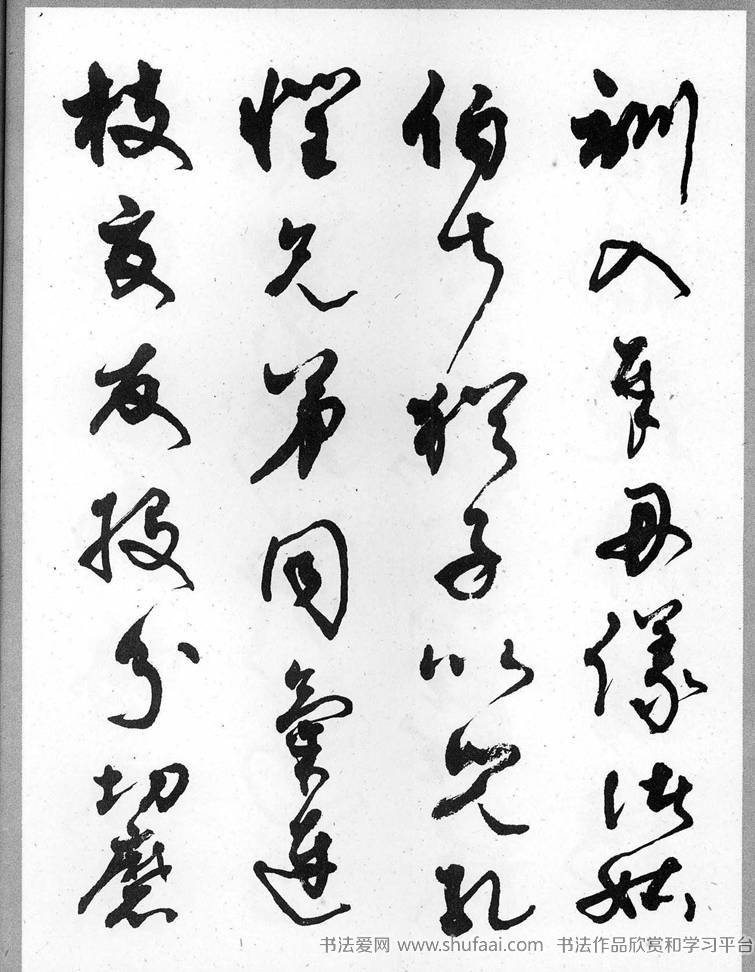 訓入奉母儀諸姑
伯叔猶子比兒孔
懷兄弟同氣連
枝交友投分切磨
书法爱网 www.shufaai.com 书法作品欣赏和学习平台